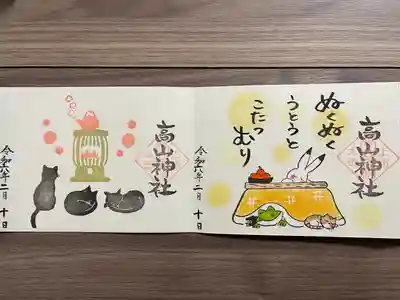 高山神社
ぬくぬく
うとうと
こたつ
むり
令和六年二月十日
高山神社
令和六年二月十日